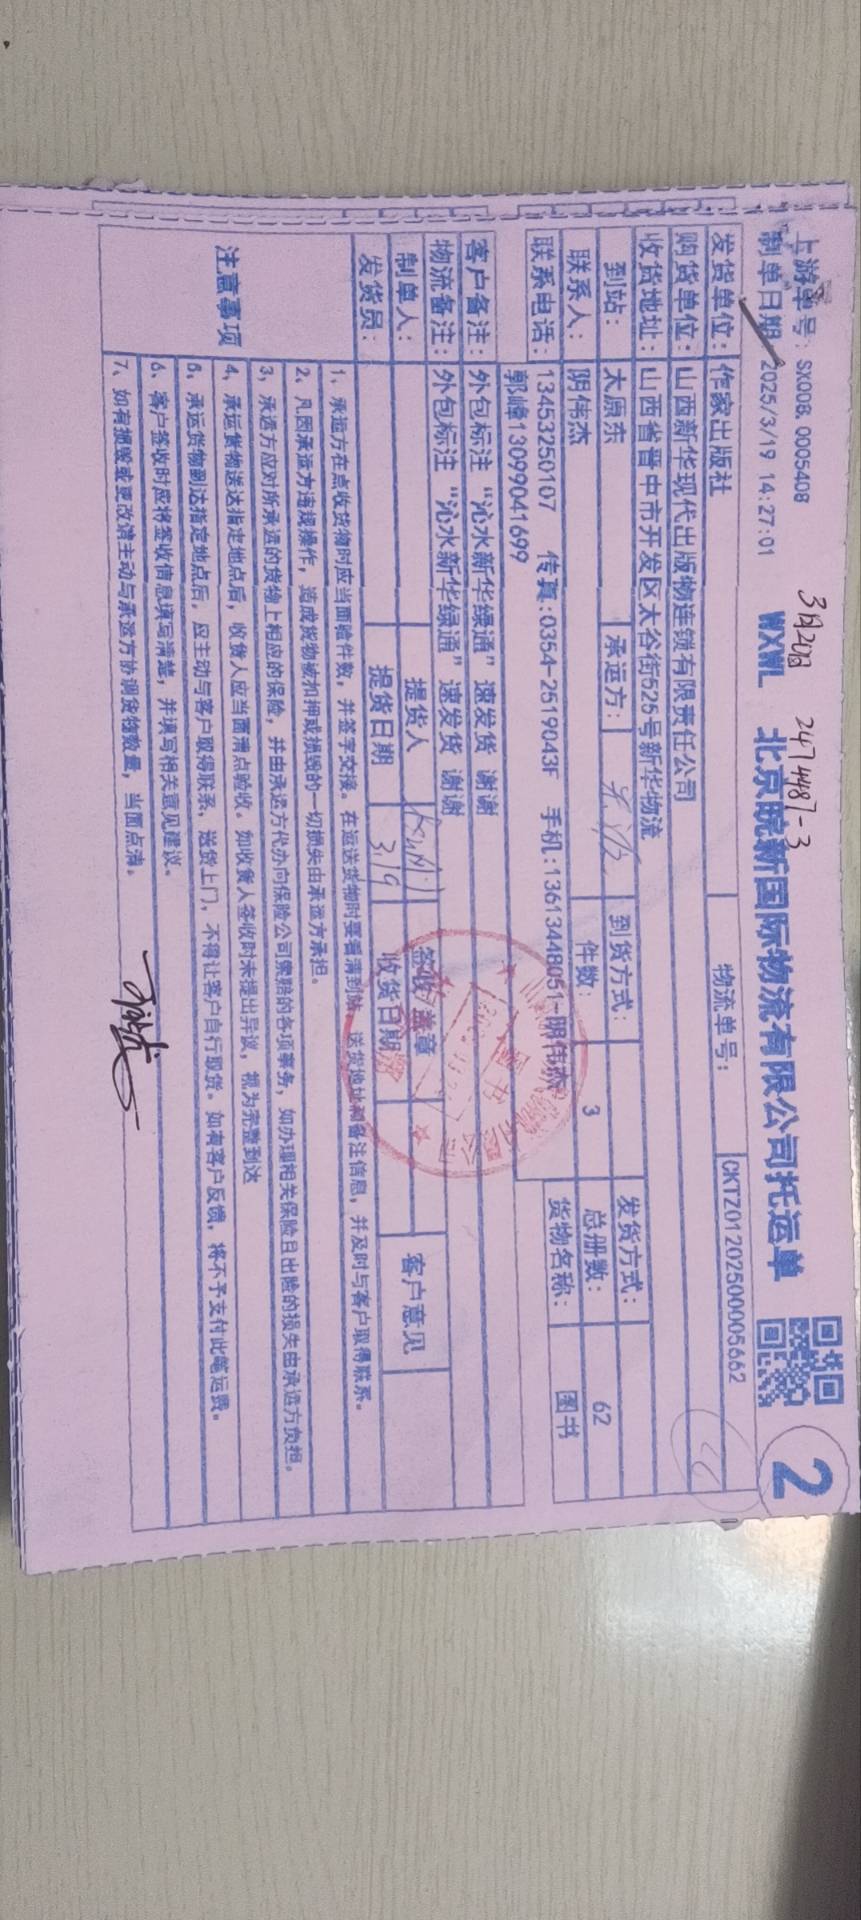 上游单号: SX00B.0005408
3月20日 2474487-3
制单日期: 2025/3/19 14:27:01
WXWL 北京皖新国际物流有限公司托运单
2
发货单位: 作家出版社 物流单号: CKTZ01202500005662
购货单位: 山西新华现代出版物连锁有限责任公司
收货地址: 山西省晋中市开发区太谷街525号新华物流
到站: 太原东 承运方: 到货方式: 发货方式:
联系人: 阴伟杰 件数: 3 总册数: 62
联系电话: 13453250107 传真:0354-2519043F 手机:13613448051-阴伟杰 货物名称: 图书
郭峰13099041699
客户备注: 外包标注“沁水新华绿通”速发货 谢谢
物流备注: 外包标注“沁水新华绿通”速发货 谢谢
制单人: 提货人 签收/盖章 客户意见
发货员: 提货日期 3.19 收货日期
注意事项
1、承运方在点收货物时应当面验件数,并签字交接。在运送货物时要看清到站、送货地址和备注信息,并及时与客户取得联系。
2、凡因承运方违规操作,造成货物被扣押或损毁的一切损失由承运方承担。
3、承运方应对所承运的货物上相应的保险,并由承运方代办向保险公司索赔的各项事务,如办理相关保险且出险的损失由承运方负担。
4、承运货物送达指定地点后,收货人应当面清点验收。如收货人签收时未提出异议,视为完整到达
5、承运货物到达指定地点后,应主动与客户取得联系,送货上门,不得让客户自行取货。如有客户反馈,将不予支付此笔运费。
6、客户签收时应将签收信息填写清楚,并填写相关意见建议。
7、如有损毁或更改请主动与承运方协调货物数量,当面点清。